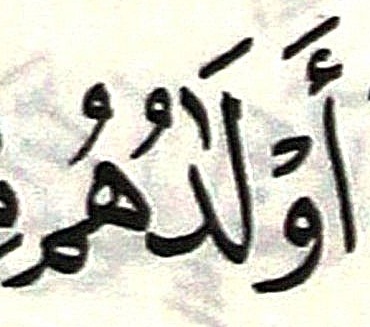 أَوْلَٰدُهُم